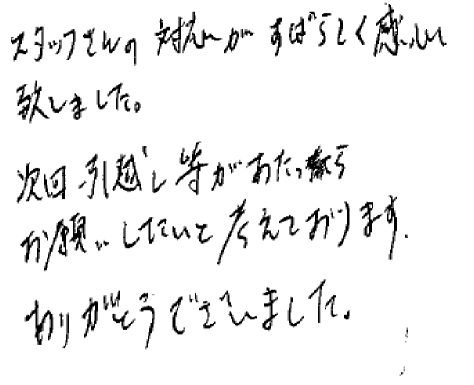 スタッフさんの対応がすばらしく感心
致しました。
次回引越し等があったら
お願いしたいと考えております。
ありがとうございました。